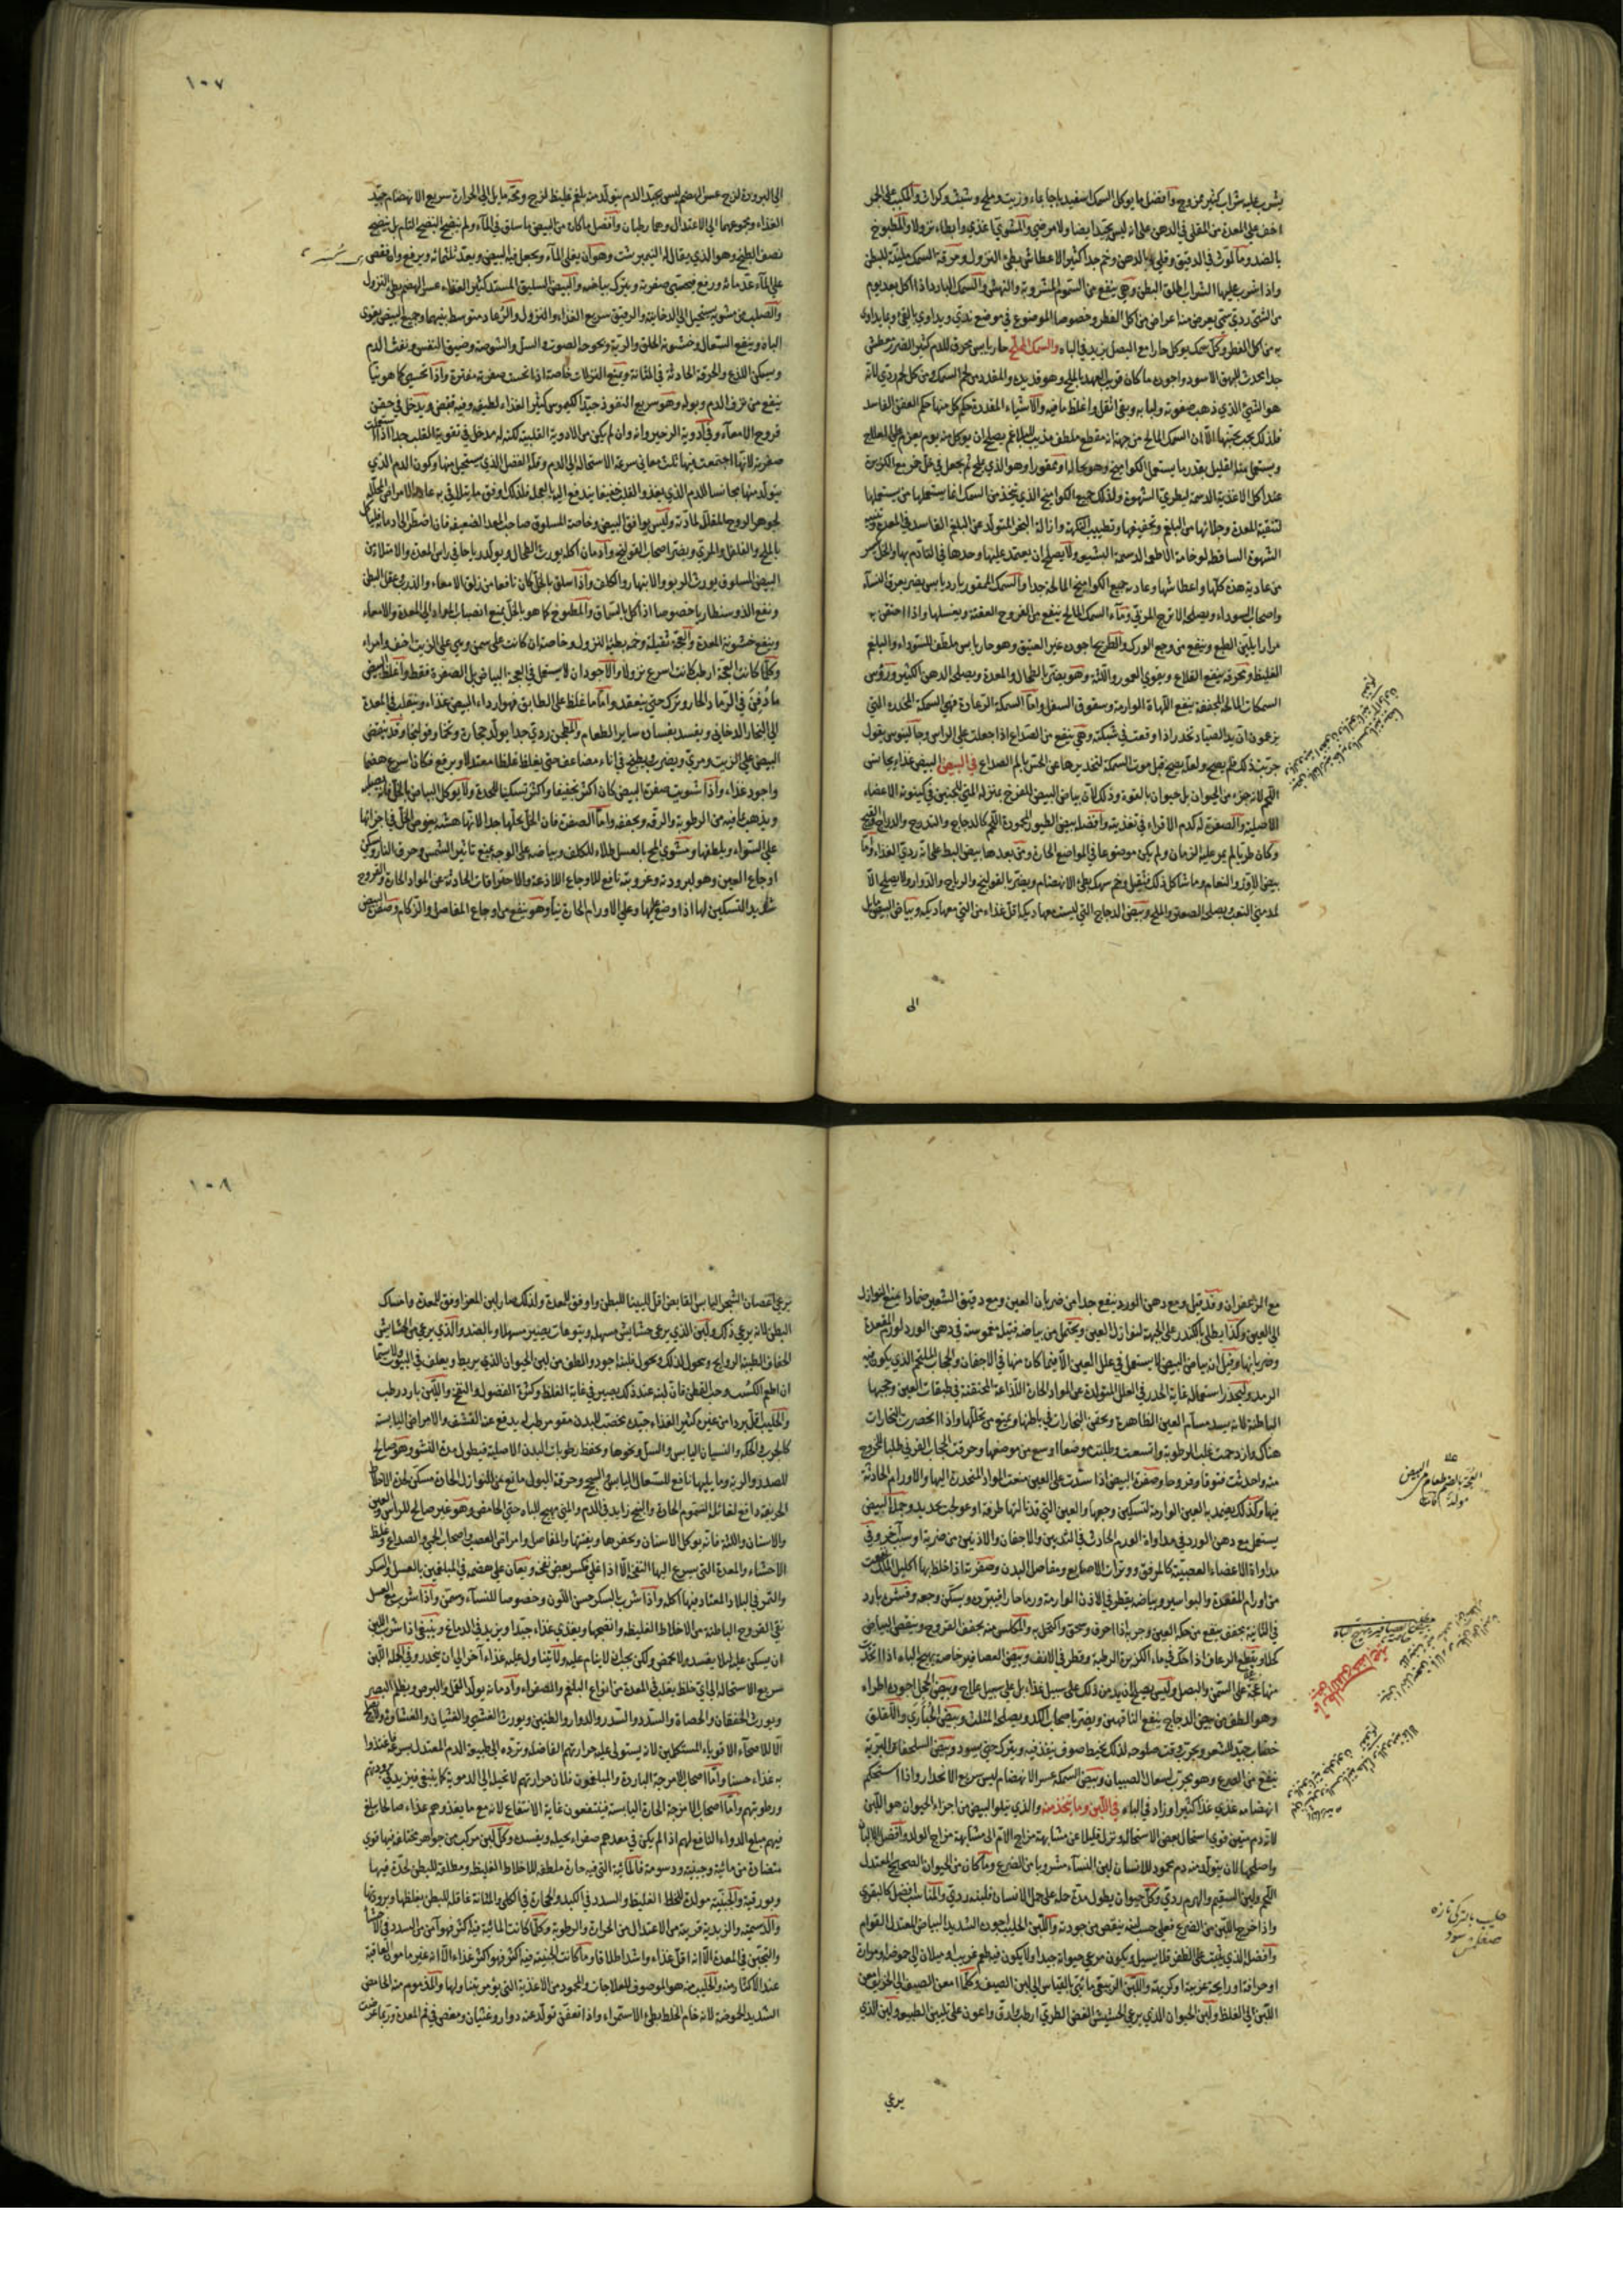 يشرب عليه شراب كثير ممزوج وافضل ما يوكل السمك اسفيدباجا بماء وزيت وملح وشبث وكراث والمكبب على الجمر
اخف على المعدة من المقلي في الدهن على انه ليس بجيد ايضا ولا مرضي والمشوي اغذي وابطاء نزولا والمطبوخ
بالضد وما لوث في الدقيق وقلي بالدهن وخم جدا كثير الاعطاش بطئ النزول ومرقة السمك ملينة للبطن
واذا شرب عليها الشراب اطلق البطن وهي ينفع من السموم المشروبة والنهش والسمك البارد اذا اكل بعد يوم
من الشئ ردي حتى يعرض منه اعراض من اكل الفطر وخصوصا الموضوع في موضع ندي ويداوي بالقئ وبما يداوى
به من اكل الفطر وكل سمك يوكل حارا مع البصل يزيد في الباه والسمك المالح حار يابس محرق للدم كثير الضرر معطش
جدا يحدث البهق الاسود واجوده ما كان قريب العهد بالملح وهو قديده والمقدد من لحم السمك ومن كل لحم ردي لانه
هو الشئ الذي ذهب صفوته ولبابه وبقي اثقل واغلظ ما فيه والاشياء المقددة حكم كل منها حكم العفن الفاسد
فلذلك يجب تجنبها الا ان السمك المالح من جهة انه مقطع ملطف مذيب للبلاغم يصلح ان يوكل منه يوم يعزم على العلاج
ويستعمل منه القليل بقدر ما يستعمل الكواميخ وهو بحاله او ممقورا وهو الذي يملح ثم يجعل في خل خمر مع الكزبرة
عند اكل الاغذية الدسمة ليطري الشهوة ولذلك جميع الكواميخ الذي يتخذ من السمك انما يستعملها من يستعملها
لتنقية المعدة وجلائها من البلغم وتجفيفها وتطييب النكهة وازالة البخر المتولد عن البلغم الفاسد في المعدة وتنبيه
الشهوة الساقطة لوخامة الاطعمة الدسمة البشيعة ولا يصلح ان يعتمد عليها وحدها في التادم بها والخل يكسر
من عادية هذه كلها واعطاشها وعادية جميع الكواميخ المالحة جدا والسمك الممقور بارد يابس يضر بعرق النسآء
واصحاب السوداء ويصلحه الاترج المربى ومآء السمك المالح ينفع من القروح العفنة ويغسلها واذا احتقن به
مرارا يلين الطبع وينفع من وجع الورك والطريخ اجوده غير العتيق وهو حار يابس ملطف للسوداء والبلغم
الغليظ ومحرقه ينفع القلاع ويقوي العمور واللثة وهو يضر بالطحال والمعدة ويصلحه الدهن الكثير ورؤس
السمكات المالحة المجففة ينفع اللهاة الوارمة وسقوق السفل واما السمكة الرعادة فهي السمكة المخدرة التي
يزعمون ان يد الصياد تخدر اذا وقعت في شبكته وهي ينفع من الصداع اذا جعلت على الراس وجالينوس يقول
جربت ذلك فلم يصح ولعله يصح قبل موت السمكة لتخديرها عن الحس بالم الصداع في البيض البيض غذاء يجانس
اللحم لانه جزء من الحيوان بل حيوان بالقوة وذلك لان بياض البيض للفرخ بمنزلة المني للجنين في كينونة الاعضاء
الاصلية والصفرة له كدم الاقراء في تغذيته وافضله بيض الطيور المحمودة اللحم كالدجاج والتدرج والدراج والقبج
وكان طريا لم يمر عليه الزمان ولم يكن موضوعا في المواضع الحارة ومن بعدها بيض البط على انه ردي الغذاء واما
بيض الاوز والنعام وما شاكل ذلك فثقيل وخم سهك بطئ الانهضام ويضر بالقولنج والرياح والدوار ولا يصلح الا
لمدمني التعب ويصلحه الصعتر والملح وبيض الدجاج التي ليست معها ديكة اقل غذاء من التي معها ديكة وبياض البيض مايل
الى
١٠٧
الى البرودة لزج عسر الهضم ليس بجيد الدم يتولد منه بلغم غليظ لزج ومحه مايل الى الحرارة سريع الانهضام جيد
الغذاء ومجموعهما الى الاعتدال وهما رطبان وافضل ما كان من البيض ما سلق في المآء ولم ينضج النضج التام بل ينضج
نصف الطبخ وهو الذي يقال له النيمبرشت وهو ان يغلي المآء ويجعل فيه البيض ويعد ثلثمائة ويرفع وان نقص
على المآء عد مائة ورفع فيحتسى صفرته ويترك بياضه والبيض السليق المستد كثير الغذاء عسر الهضم بطئ النزول
والصلب من مشويه يستحيل الى الدخانية والرقيق سريع الغذاء والنزول والرعاد متوسط بينهما وجميع البيض يقوى
الباه وينفع السعال وخشونة الحلق والرية وبحوحة الصوت والسل والشوصة وضيق النفس ونفث الدم
ويسكن اللذع والحرقة الحادثة في المثانة ويمنع النزلات خاصة اذا تحسيت صفرته مفترة واذا تحسي كما هو نيا
ينفع من نزف الدم وبوله وهو سريع النفوذ جيد الكيموس كثير الغذاء لطيفه وفيه تقبض ويدخل في حقن
قروح الامعآء وفي ادوية الزحير وانه وان لم يكن من الادوية القلبية لكنه له مدخل في تقوية القلب جدا اذا استعملت
صفرته لانها اجتمعت فيها ثلث معاني سرعة الاستحالة الى الدم وقلة الفضل الذي يستحيل منها وكون الدم الذي
يتولد منها مجانسا للدم الذي يغذو القلب خفيفا يندفع اليه بالعجلة فلذلك اوفق ما يتلافى به عادية الامراض المحللة
لجوهر الروح المقللة لمادته وليس يوافق البيض وخاصة المسلوق صاحب المعدة الضعيفة فان اضطر الى ادمانه فلياكله
بالملح والفلفل والمري ويضر اصحاب القولنج وادمان اكله يورث الطحال ويولد رياحا في راس المعدة والامتلاء من
البيض المسلوق يورث الربو والانبهار والكلف واذا سلق بالخل كان نافعا من زلق الامعاء والذرب وعقل البطن
ونفع الذوسنطاريا خصوصا اذا اكل بالسماق والمطبوخ كما هو بالخل يمنع انصباب المواد الى المعدة والامعاء
وينفع خشونة المعدة والعجة ثقيلة وخمة بطئة النزول وخاصة ان كانت على سمن وهي على الزيت اخف وامراء
وكلما كانت العجة ارطب كانت اسرع نزولا والاجود ان لا يستعمل في العجة البياض بل الصفرة فقط واغلظ البيض
ما دفن في الرماد الحار وترك حتى ينعقد واما ما غلظ على الطابق فهو اردا البيض غذاء وينقلب في المعدة
الى البخار الدخاني ويفسد بفساده ساير الطعام والمطجن ردي جدا يولد حجارة وتخما وقولنجا وقد يتقضى
البيض على الزيت ومري ويضرب ويطبخ في اناء مضاعف حتى يغلظ غلظا معتدلا ويرفع فكان اسرع هضما
واجود غذاء واذا شويت صفرة البيض كان اكثر تجفيفا واكثر تسكينا للحدة ولا يوكل البياض بالخل فانه يصلبه
ويذهب بما فيه من الرطوبة والرقة ويجففه واما الصفرة فان الخل يحلها جدا لانها هشة يغوص الخل في اجزائها
على السواء ويلطفها ومشوي المح بالعسل طلاء للكلف وبياضه على الوجه يمنع تاثير الشمس وحرق النار ويسكن
اوجاع العين وهو لبرودته وغرويته نافع للاوجاع اللاذعة والاحتراقات الحادثة عن المواد الحارة والقروح
شديد التسكين لها اذا وضع عليها وعلى الاورام الحارة نيا وهو ينفع من اوجاع المفاصل والزكام وصفرة البيض
مع الزعفران وقد قيل ومع دهن الورد ينفع جدا من ضربان العين ومع دقيق الشعير ضمادا يمنع النوازل
الى العين وكذا يطلى بالكندر على الجبهة لنوازل العين ويحتمل من بياضه فتيلة مغموسة في دهن الورد لورم المقعدة
وضربانها وقيل ان بياض البيض لا يستعمل في علل العين الا فيما كان منها في الاجفان والحجاب الملتحم الذي يكون فيه
الرمد وليحذر استعماله غاية الحذر في العلل المتولدة عن المواد الحارة اللذاعة المحتقنة في طبقات العين وحجبها
الباطنة لانه يسد مسآم العين الظاهرة ويحقن البخارات في باطنها ويمنع من تحللها واذا انحصرت البخارات
هناك وازدحمت غلب الرطوبة واتسعت وطلبت موضعا اوسع من موضعها وحرقت الحجاب القرني طلبا للخروج
منه واحدثت فتوقا وقروحا وصفرة البيض اذا سدت على العين منعت المواد المنحدرة اليها والاورام الحادثة
فيها وكذلك يضمد بالعين الوارمة لتسكين وجعها والعين التي قد نالتها طرفة او عولجت بحديد وجملة البيض
يستعمل مع دهن الورد في مداواة الورم الحادث في الثديين والاجفان والاذنين من ضربة او سبب آخر وفي
مداواة الاعضاء العصبية كالمرفق ووترات الاصابع ومفاصل البدن وصفرته اذا خلط بها اكليل الملك نفعت
من اورام المقعدة والبواسير وبياضه يقطر في الاذن الوارمة ورما حارا فيبرده ويسكن وجعه وقشره بارد
في الثانية يجفف ينفع من حكة العين وجربه اذا احرق وسحق واكتحل به والمكلس منه يجفف القروح وينقص البياض
كحلا ويقطع الرعاف اذا حك في ماء الكزبرة الرطبة وقطر في الانف وبيض العصافير خاصة يهيج الباه اذا اتخذت
منها عجة على السمن والبصل وليس يصلح ان يدمن ذلك على سبيل غذاء بل على سبيل علاج وبيض الحجل اجوده اطراه
وهو الطف من بيض الدجاج ينفع الناقهين ويضر باصحاب الكد ويصلحه المثلث وبيض الحباري والقلق
خضاب جيد للشعر ويجرب وقت صلوحه لذلك بخيط صوف ينفذ فيه ويترك حتى يسود وبيض السلحفاة البرية
ينفع من الصرع وهو مجرب لسعال الصبيان وبيض السمكة عسر الانهضام ليس سريع الانحدار واذا استحكم
انهضامه غذي غذا كثيرا وزاد في الباه في اللبن وما يتخذ منه والذي يتلو البيض من اجزاء الحيوان هو اللبن
لانه دم متين قوي استحال بعض الاستحالة ونزل قليلا عن مشابهة مزاج الام الى مشابهة مزاج الولد وافضل الالبان
واصلحها لان يتولد منه دم محمود للانسان لبن النسآء مشروبا من الضرع وما كان من الحيوان الصحيح المعتدل
اللحم ولبن السقيم والهرم ردي وكل حيوان يطول مدة حمله على حمل الانسان فلبنه ردي والمناسب افضل كالبقري
واذا خرج اللبن من الضرع فعلى حسب لبثه ينقص من جودته واللبن الحليب اجوده الشديد البياض المعتدل القوام
وافضله الذي يثبت على الظفر فلا يسيل ويكون مرعى حيوانه جيدا ولا يكون فيه طعم غريب او ميلان الى حموضة او مرارة
او حرافة او رايحة غريبة او كريهة واللبن الربيعي مائي بالقياس الى لبن الصيف وكلما امعن الصيف الى الخريف امعن
اللبن الى الغلظ ولبن الحيوان الذي يرعى الحشيش الغض الطري ارطب وارق واعون على تليين الطبع ولبن الذي
حليب بالتركي تازه
يرعي
١٠٨
يرعي اغصان الشجر اليابس القابض اقل تليينا للبطن واوفق للمعدة ولذلك صار لبن المعز اوفق للمعدة وامساك
البطن لانه يرعي ذلك ولبن الذي يرعى حشايش مسهلة ويتوعات يصير مسهلا وبالضد والذي يرعى من الحشايش
الجفاف الطيبة الروايح ونحول لذلك ونحول فلبنه اجود والطف من لبن الحيوان الذي يربط ويعلف في البيوت ولاسيما
ان اطعم الكسب وحب القطن فان لبنه عند ذلك يصير في غاية الغلظ وكثرة الفضول والنفخ واللبن بارد رطب
والحليب اقل بردا من غيره كثير الغذاء جيده مخصب للبدن مقو مرطب له يدفع عنه القشف والامراض اليابسة
كالجرب والحكة والنسيان اليابس والسل ونحوها ويحفظ رطوبات البدن الاصلية فيطول مدة النشو وهو صالح
للصدر والرية وما يليها نافع للسعال اليابس والسحج وحرقة البول مانع من النوازل الحارة مسكن لحدة الاخلاط
الحريفة دافع لغائلة السموم الحارة والبنج زايد في الدم والمني مهيج للباه حتى الحامض وهو غير صالح للراس والعين
والاسنان واللثة فانه يوكل الاسنان ويحفرها ويفتتها والمفاصل وامراض العصب واصحاب الحمى والصداع وغلظ
الاحشاء والمعدة التي يسرع اليها النفخ الا اذا اغلي فيكسر بعض نفخه ويعان على هضمه في المبلغمين بالعسل والسكر
والتمر في البلاد المعتاد فيها اكله واذا شرب بالسكر حسن اللون وخصوصا للنسآء وسمن واذا شرب مع العسل
نقى القروح الباطنة من الاخلاط الغليظة وانضجها ويغذي غذاء جيدا ويزيد في الدماغ وينبغي اذا شرب اللبن
ان يسكن عليه لئلا يفسد ولا يحمض ولكن يجب ان لا ينام عليه ولا يتناول عليه غذاء آخر الى ان ينحدر وفي الجملة اللبن
سريع الاستحالة الى اي خلط يغلب في المعدة من انواع البلغم والصفراء وادمانه يولد القمل والبرص ويظلم البصر
ويورث الخفقان والحصاة والسدد والسدر والدوار والطنين ويورث الغشي والغثيان والغشاوة
الا للاصحاء الاقوياء المستكملين لانه يستولي عليه حرارتهم الفاضلة وترده الى طبيعة الدم المعتدل بسرعة فاغتذوا
به غذاء حسنا واما اصحاب الامزجة الباردة والمبلغمون فلان حرارتهم لا تحيله الى الدموية كما ينبغي فيزيد في برودتهم
ورطوبتهم واما اصحاب الامزجة الحارة اليابسة فينتفعون غاية الانتفاع لانه مع ما يغذوهم غذاء صالحا يبلغ
فيهم مبلغ الدواء النافع لهم اذا لم يكن في معدهم صفراء يحيله ويفسده وكل لبن مركب من جواهر مختلفة فيها قوى
متضادة من مائية وجبنية ودسومة فالمائية التي فيه حارة ملطفة للاخلاط الغليظة ومطلقة للبطن لحدة فيها
وبورقية والجبنية مولدة للخلط الغليظ والسدد في الكبد والحجارة في الكلى والمثانة عاقل للبطن بغلظها وبرودتها
والدسمية والزبدية قريبة من الاعتدال من الحرارة والرطوبة وكلما كانت المائية فيه اكثر فهو آمن من السدد في الاحشا
والتجبن في المعدة الا انه اقل غذاء واشد اطلاقا وما كانت الجبنية فيه اكثر فهو اكثر غذاء الا انه غير مامون العاقبة
عند الاكثار منه والحليب منه هو الموصوف للعلاجات والمحمود من الاغذية التي يؤمر بتناولها والمذموم منه الحامض
الشديد الحموضة لانه خام الخلط بطئ الاستمراء واذا تعفن تولد عنه دوار وغشيان ومغص في فم المعدة وربما عرضت